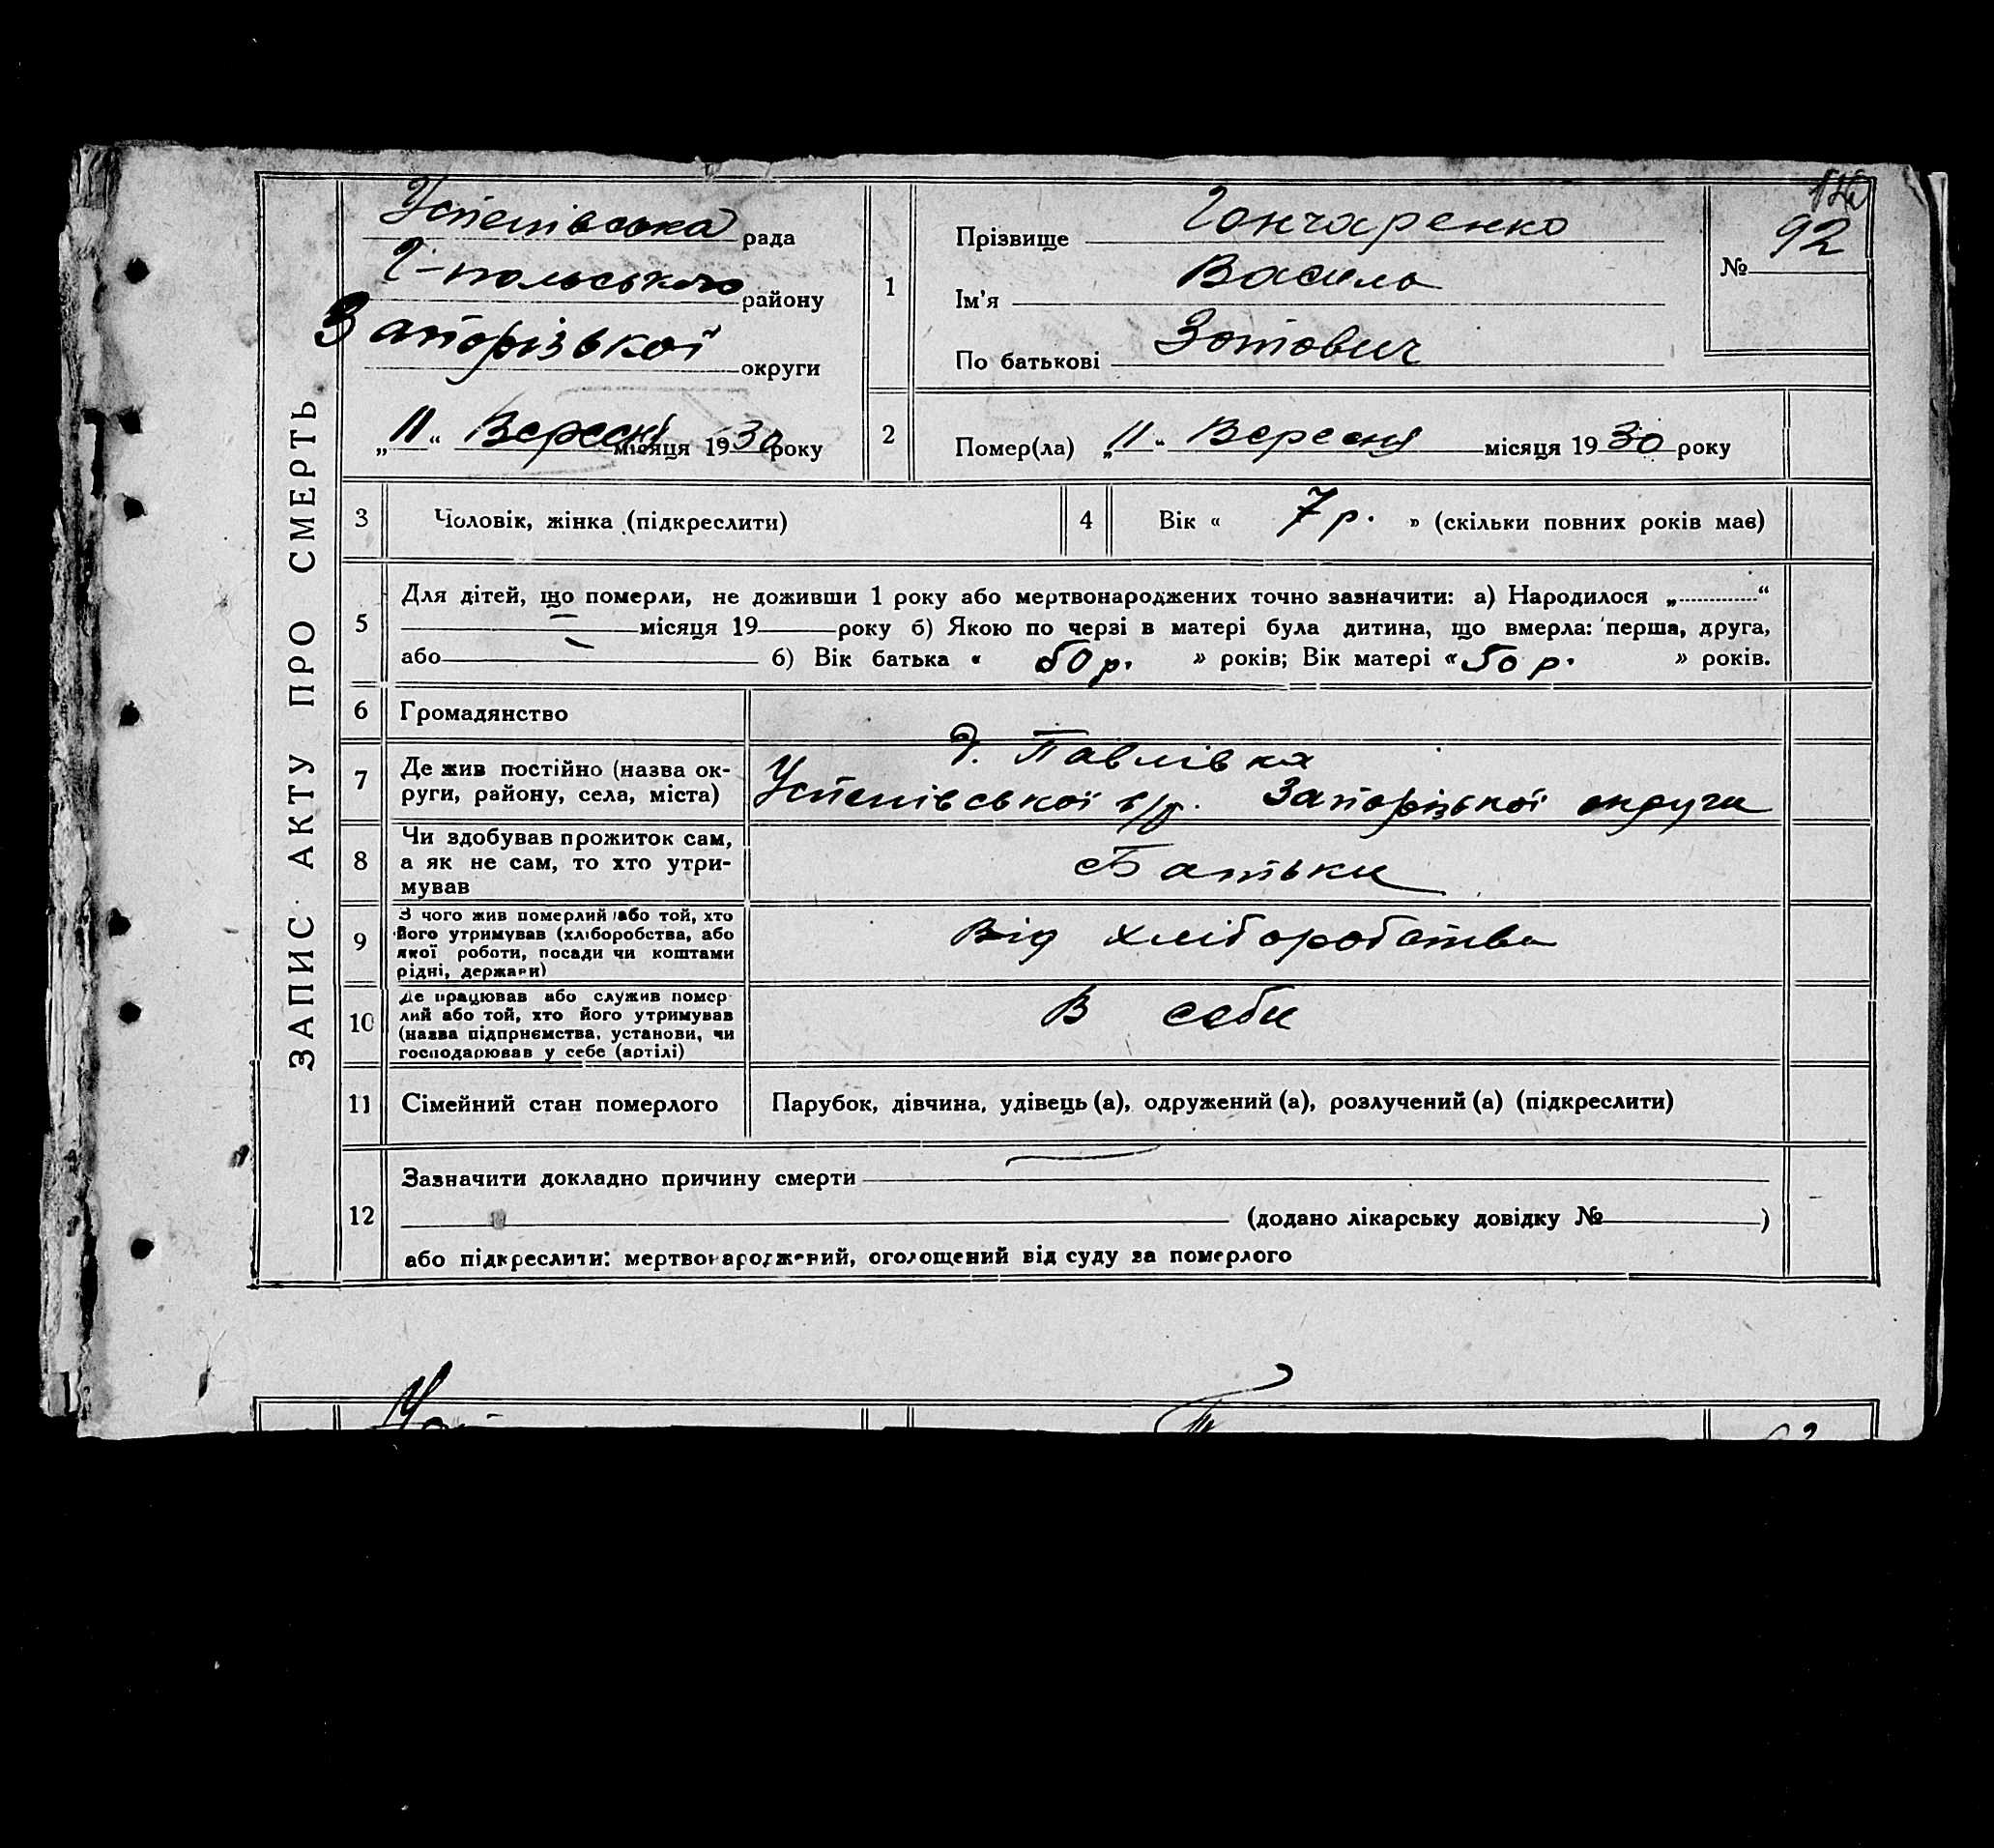 ЗАПИС АКТУ ПРО СМЕРТЬ
Успенівська рада
Г-польського району
Запорізької округи
„11“ Вересня місяця 1930 року
1
Прізвище Гончаренко
Ім'я Василь
По батькові Зотович
№ 92
2
Помер(ла) „11“ Вересня місяця 1930 року
3 Чоловік, жінка (підкреслити)
4 Вік « 7 р. » (скільки повних років має)
5
Для дітей, що померли, не доживши 1 року або мертвонароджених точно зазначити: а) Народилося „ “
місяця 19 року б) Якою по черзі в матері була дитина, що вмерла: перша, друга,
або б) Вік батька « 50 р. » років; Вік матері « 50 р. » років.
6 Громадянство
7 Де жив постійно (назва ок-
руги, району, села, міста)
Павлівка
Успенівської с/р. Запорізької округи
8 Чи здобував прожиток сам,
а як не сам, то хто утри-
мував
Батьки
9 З чого жив померлий або той, хто
його утримував (хліборобства, або
якої роботи, посади чи коштами
рідні, держави)
Від хліборобства
10 Де працював або служив помер-
лий або той, хто його утримував
(назва підпрнємства, установи, чи
господарював у себе (артілі)
В себи
11 Сімейний стан померлого
Парубок, дівчина, удівець (а), одружений (а), розлучений (а) (підкреслити)
12
Зазначити докладно причину смерти
(додано лікарську довідку № )
або підкреслити: мертвонароджений, оголощений від суду за померлого